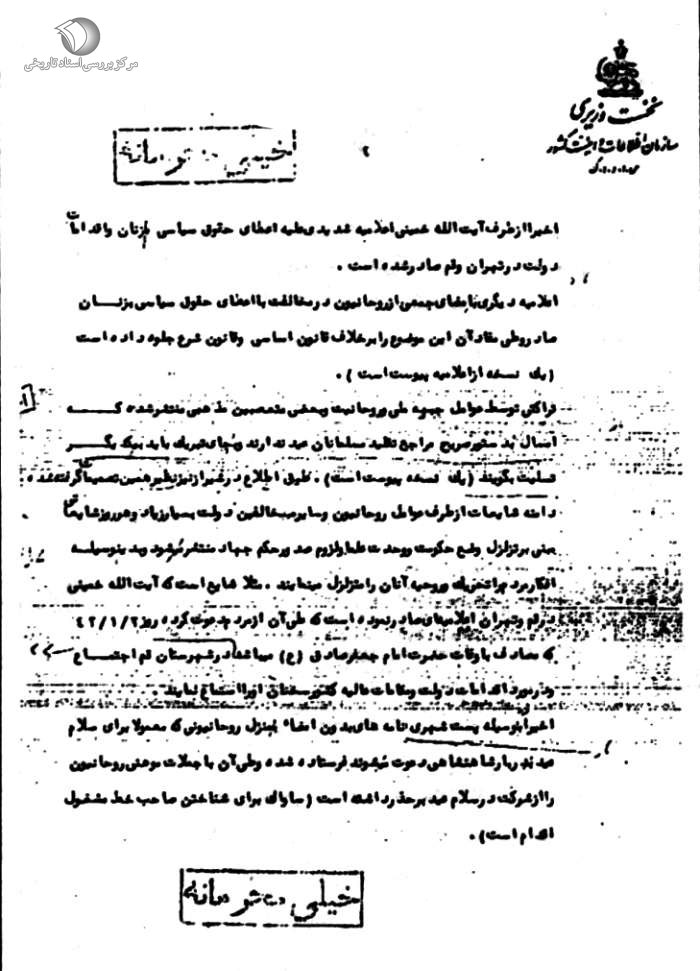 مرکز بررسی اسناد تاریخی
نخست وزیری
سازمان اطلاعات و امنیت کشور
س.ا.و.ا.ک
خیلی محرمانه
۲
اخیرا از طرف آیت الله خمینی اعلامیه شدیدی علیه اعطای حقوق سیاسی بزنان و اقدامات
دولت در تهران و قم صادر شده است .
اعلامیه دیگری با امضای جمعی از روحانیون در مخالفت با اعطای حقوق سیاسی بزنــان
صادر و طی مفاد آن این موضوع را برخلاف قانون اساسی و قانون شرع جلوه داده است
(یک نسخه از اعلامیه پیوست است ) .
تراکتی توسط عوامل جبهه ملی و روحانیت و بعضی متعصبین مذهبی منتشر شده کــه
امسال بدستور صریح مراجع تقلید مسلمانان عید ندارند و بجای تبریک باید بیکدیگــر
تسلیت بگویند (یک نسخه پیوست است) . طبق اطلاع در شیراز نیز نظیر همین تصمیمات گرفته شده
دامنه شایعات از طرف عوامل روحانیون و سایر مخالفین دولت بسیار زیاد و هر روز شایعاتی
مبنی بر تزلزل وضع حکومت و وحدت علما و لزوم صدور حکم جهاد منتشر میشود و بدینوسیلــه
افکار مردم را تحریک و روحیه آنان را متزلزل مینمایند . مثلا شایع است که آیت الله خمینی
در قم و تهران اعلامیه‌ای صادر نموده است که طی آن از مردم دعوت کرده روز ۴۲/۱/۲
که مصادف با وفات حضرت امام جعفر صادق (ع) میباشد در شهرستان قم اجتمــاع
و در مورد اقدامات دولت و مقامات عالیه کشور سخنان او را استماع نمایند .
اخیرا بوسیله پست شهری نامه های بدون امضاء بمنزل روحانیونی که معمولا برای سلام
عید بدربار شاهنشاهی دعوت میشوند فرستاده شده و طی آن با جملات موهنی روحانیون
را از شرکت در سلام عید برحذر داشته است (ساواک برای شناختن صاحب خط مشغول
اقدام است) .
خیلی محرمانه